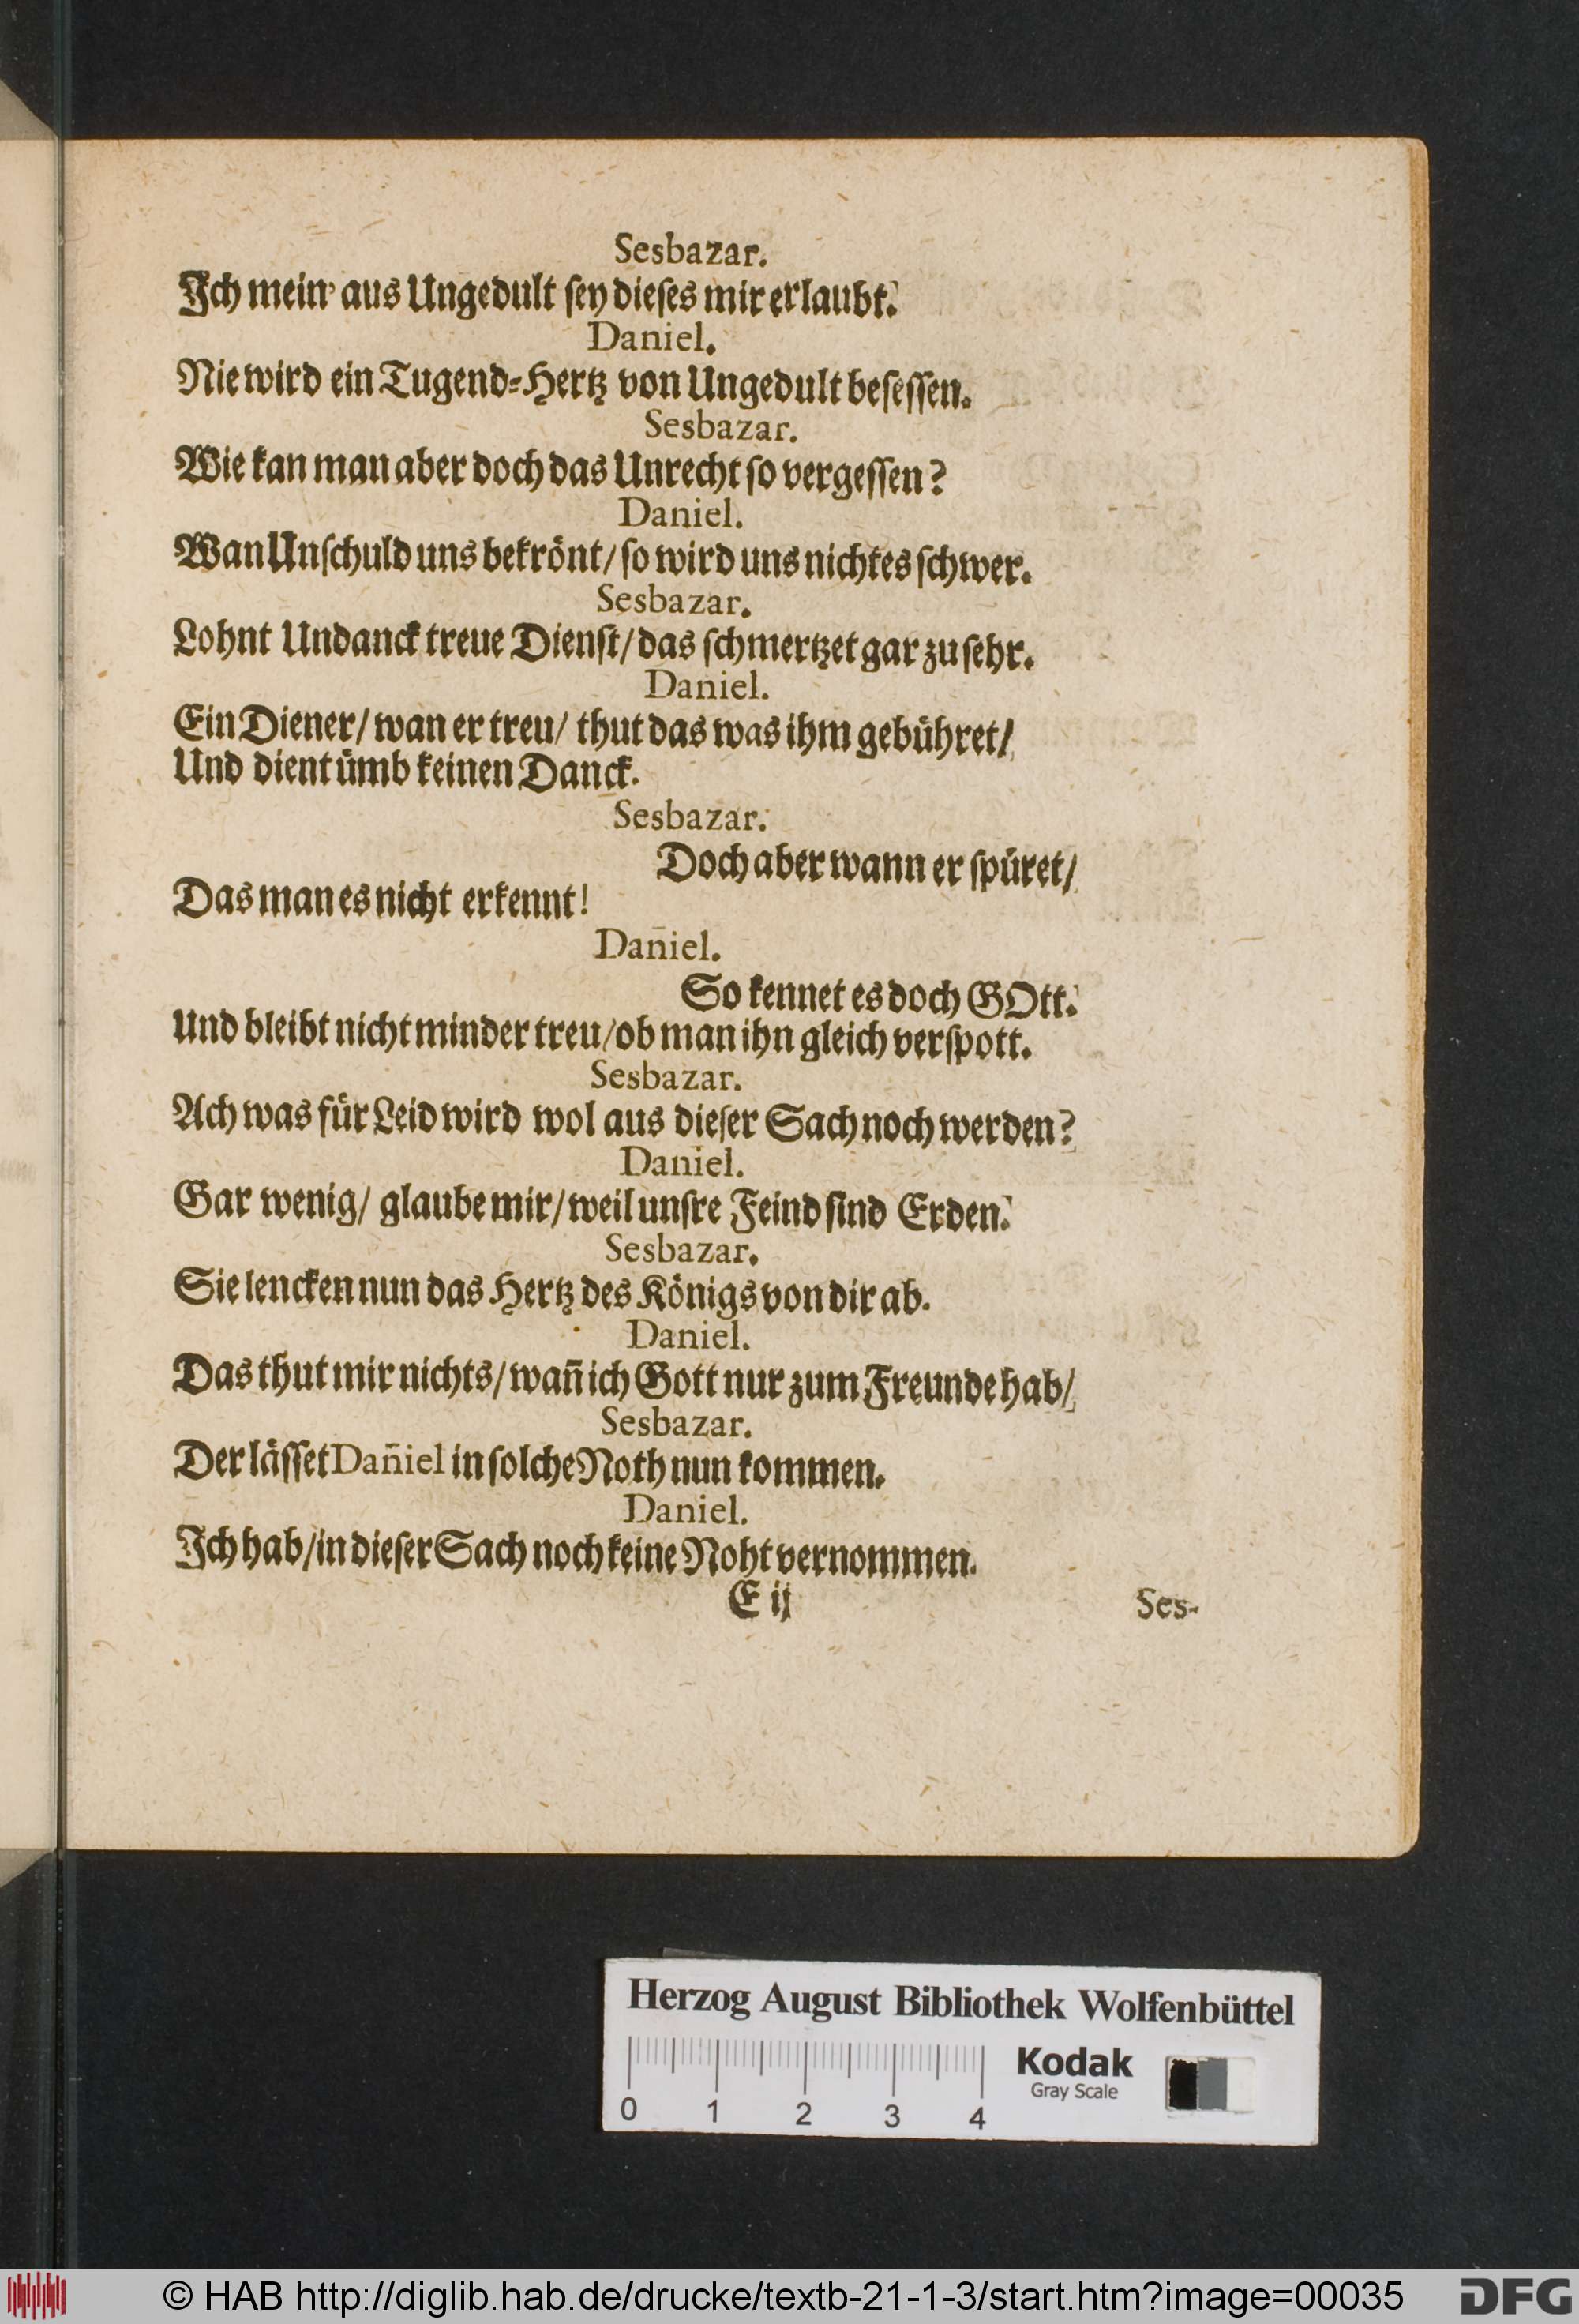 Sesbazar.
Ich mein' aus Ungedult ſey dieſes mir erlaubt.
Daniel.
Nie wird ein Tugend-Hertz von Ungedult beſeſſen.
Sesbazar.
Wie kan man aber doch das Unrecht ſo vergeſſen?
Daniel.
Wan Unſchuld uns bekrönt/ ſo wird uns nichtes ſchwer.
Sesbazar.
Lohnt Undanck treue Dienſt/ das ſchmertzet gar zu ſehr.
Daniel.
Ein Diener/ wan er treu/ thut das was ihm gebühret/
Und dient ümb keinen Danck.
Sesbazar.
Doch aber wann er ſpüret/
Das man es nicht erkennt!
Dan̄iel.
So kennet es doch GOtt.
Und bleibt nicht minder treu/ ob man ihn gleich verſpott.
Sesbazar.
Ach was für Leid wird wol aus dieſer Sach noch werden?
Daniel.
Gar wenig/ glaube mir/ weil unſre Feind ſind Erden.
Sesbazar.
Sie lencken nun das Hertz des Königs von dir ab.
Daniel.
Das thut mir nichts/ wan̄ ich Gott nur zum Freunde hab/
Sesbazar.
Der läſſet Dan̄iel in ſolche Noth nun kommen.
Daniel.
Ich hab/ in dieſer Sach noch keine Noht vernommen.
E ij
Ses-
Herzog August Bibliothek Wolfenbüttel
Kodak
Gray Scale
0 1 2 3 4
© HAB http://diglib.hab.de/drucke/textb-21-1-3/start.htm?image=00035
DFG